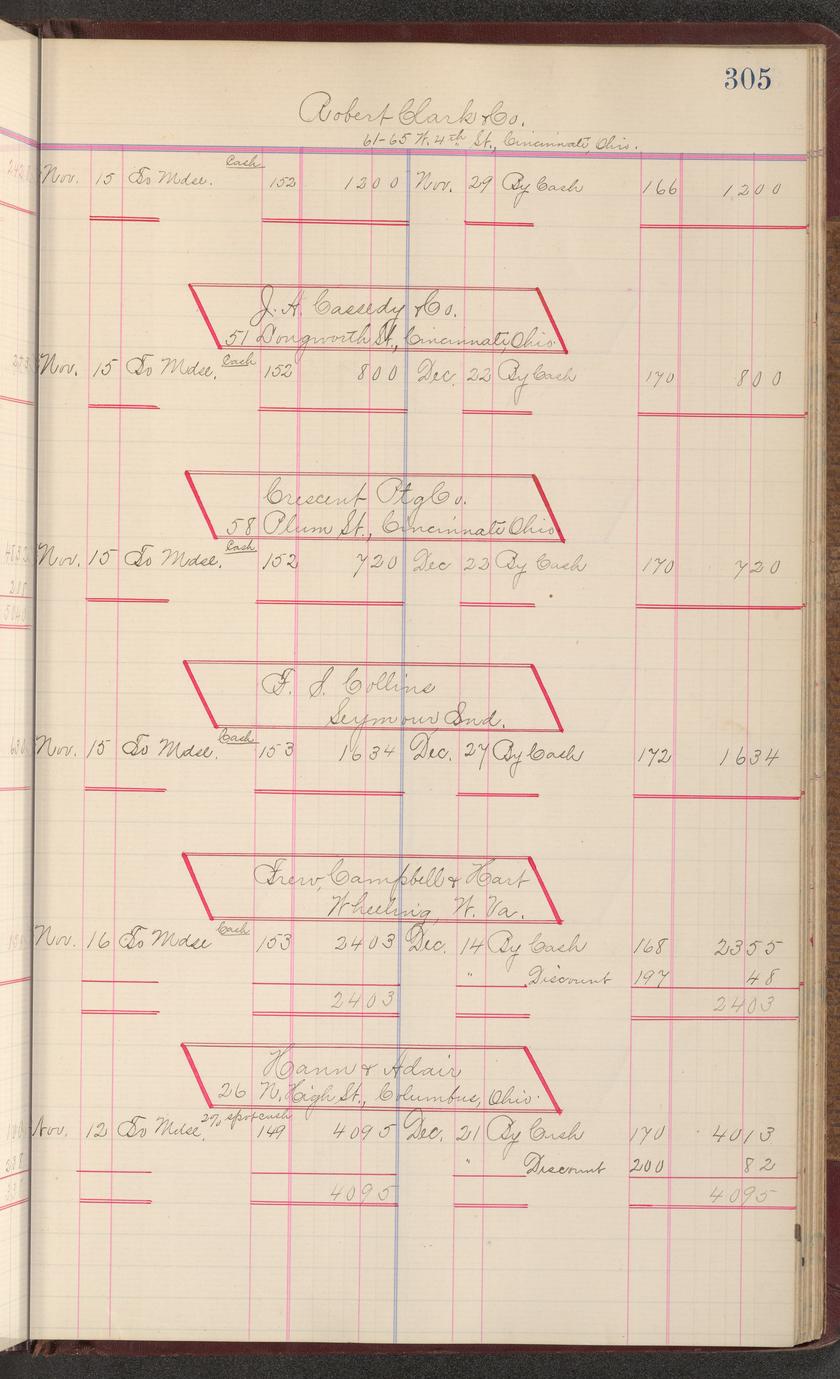 305
Robert Clark & Co.
61-65 W. 4th St., Cincinnati, Ohio.
Nov. 15 To Mdse. Cash 152 1200 Nov. 29 By Cash 166 1200
J. A. Cassedy & Co.
51 Longworth St., Cincinnati, Ohio.
Nov. 15 To Mdse. Cash 152 800 Dec. 22 By Cash 170 800
Crescent Ptg Co.
58 Plum St., Cincinnati Ohio
Nov. 15 To Mdse. Cash 152 720 Dec 22 By Cash 170 720
F. S. Collins
Seymour Ind.
Nov. 15 To Mdse. Cash 153 1634 Dec. 27 By Cash 172 1634
Frew, Campbell & Hart
Wheeling, W. Va.
Nov. 16 To Mdse Cash 153 2403 Dec. 14 By Cash 168 2355
" Discount 197 48
2403 2403
Hann & Adair
26 N. High St., Columbus, Ohio.
Nov. 12 To Mdse. 2% spot cash 149 4095 Dec. 21 By Cash 170 4013
" Discount 200 82
4095 4095